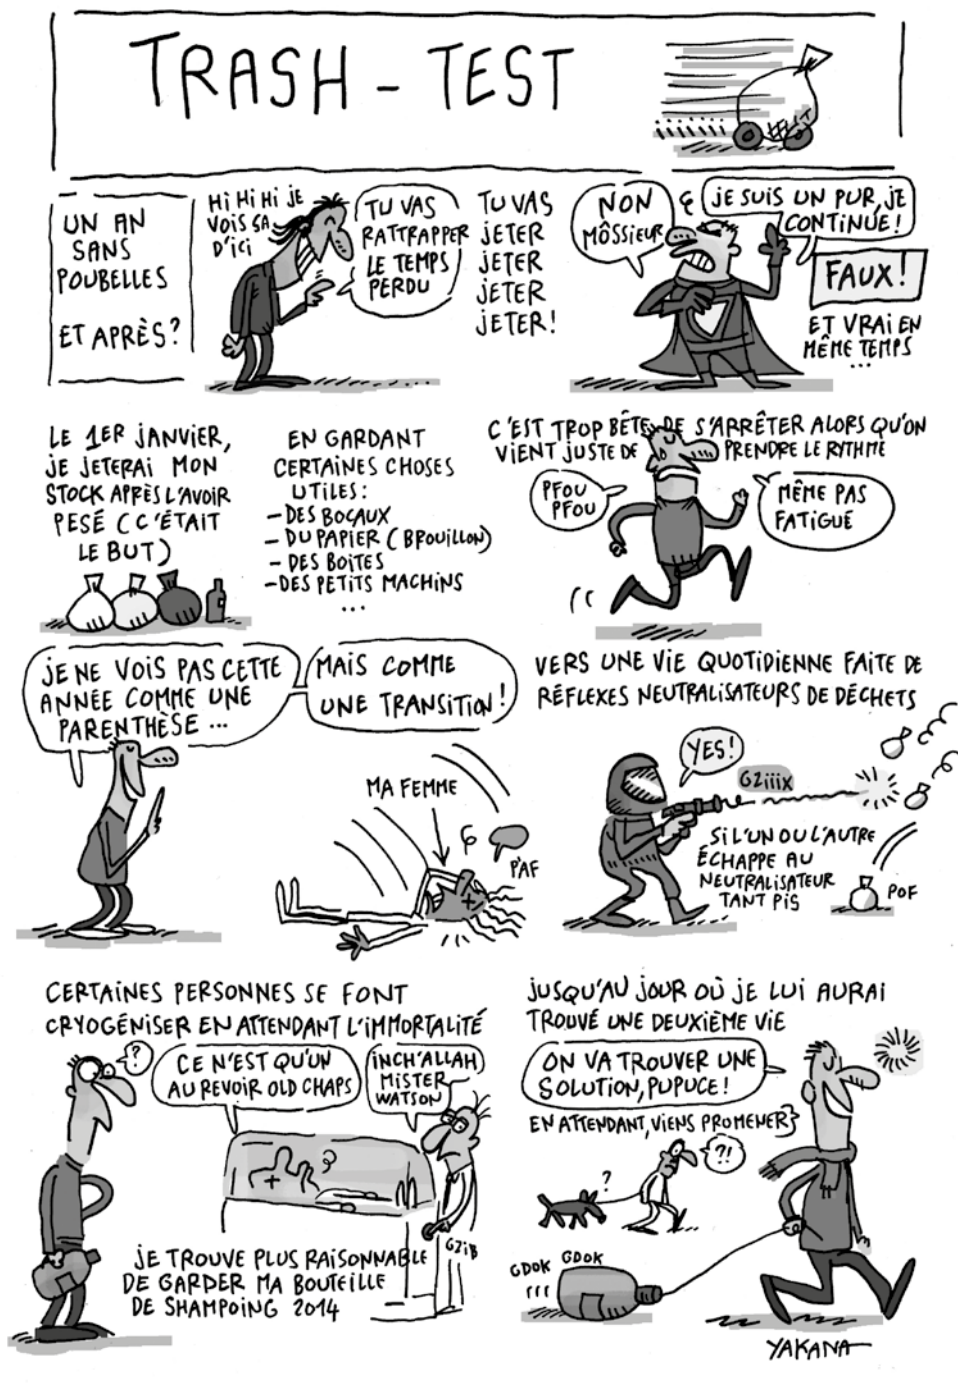 TRASH - TEST
UN AN
SANS
POUBELLES
ET APRÈS?
Hi Hi Hi JE
VOIS ÇA
D'ICI
TU VAS
RATTRAPPER
LE TEMPS
PERDU
TU VAS
JETER
JETER
JETER
JETER!
NON
MÔSSIEUR
JE SUIS UN PUR, JE
CONTINUE!
FAUX!
ET VRAI EN
MÊME TEMPS
...
LE 1ER JANVIER,
JE JETERAI MON
STOCK APRÈS L'AVOIR
PESÉ (C'ÉTAIT
LE BUT)
EN GARDANT
CERTAINES CHOSES
UTILES:
- DES BOCAUX
- DU PAPIER (BROUILLON)
- DES BOITES
- DES PETITS MACHINS
...
C'EST TROP BÊTE DE S'ARRÊTER ALORS QU'ON
VIENT JUSTE DE PRENDRE LE RYTHME
PFOU
PFOU
MÊME PAS
FATIGUÉ
JE NE VOIS PAS CETTE
ANNÉE COMME UNE
PARENTHÈSE ...
MAIS COMME
UNE TRANSITION!
MA FEMME
PAF
VERS UNE VIE QUOTIDIENNE FAITE DE
RÉFLEXES NEUTRALISATEURS DE DÉCHETS
YES!
GZiiiX
SI L'UN OU L'AUTRE
ÉCHAPPE AU
NEUTRALISATEUR
TANT PIS
POF
CERTAINES PERSONNES SE FONT
CRYOGÉNISER EN ATTENDANT L'IMMORTALITÉ
?
CE N'EST QU'UN
AU REVOIR OLD CHAPS
INCH'ALLAH
MISTER
WATSON
GZiB
JE TROUVE PLUS RAISONNABLE
DE GARDER MA BOUTEILLE
DE SHAMPOING 2014
JUSQU'AU JOUR OÙ JE LUI AURAI
TROUVÉ UNE DEUXIÈME VIE
ON VA TROUVER UNE
SOLUTION, PUPUCE!
EN ATTENDANT, VIENS PROMENER
?!
?
GDOK GDOK
YAKANA